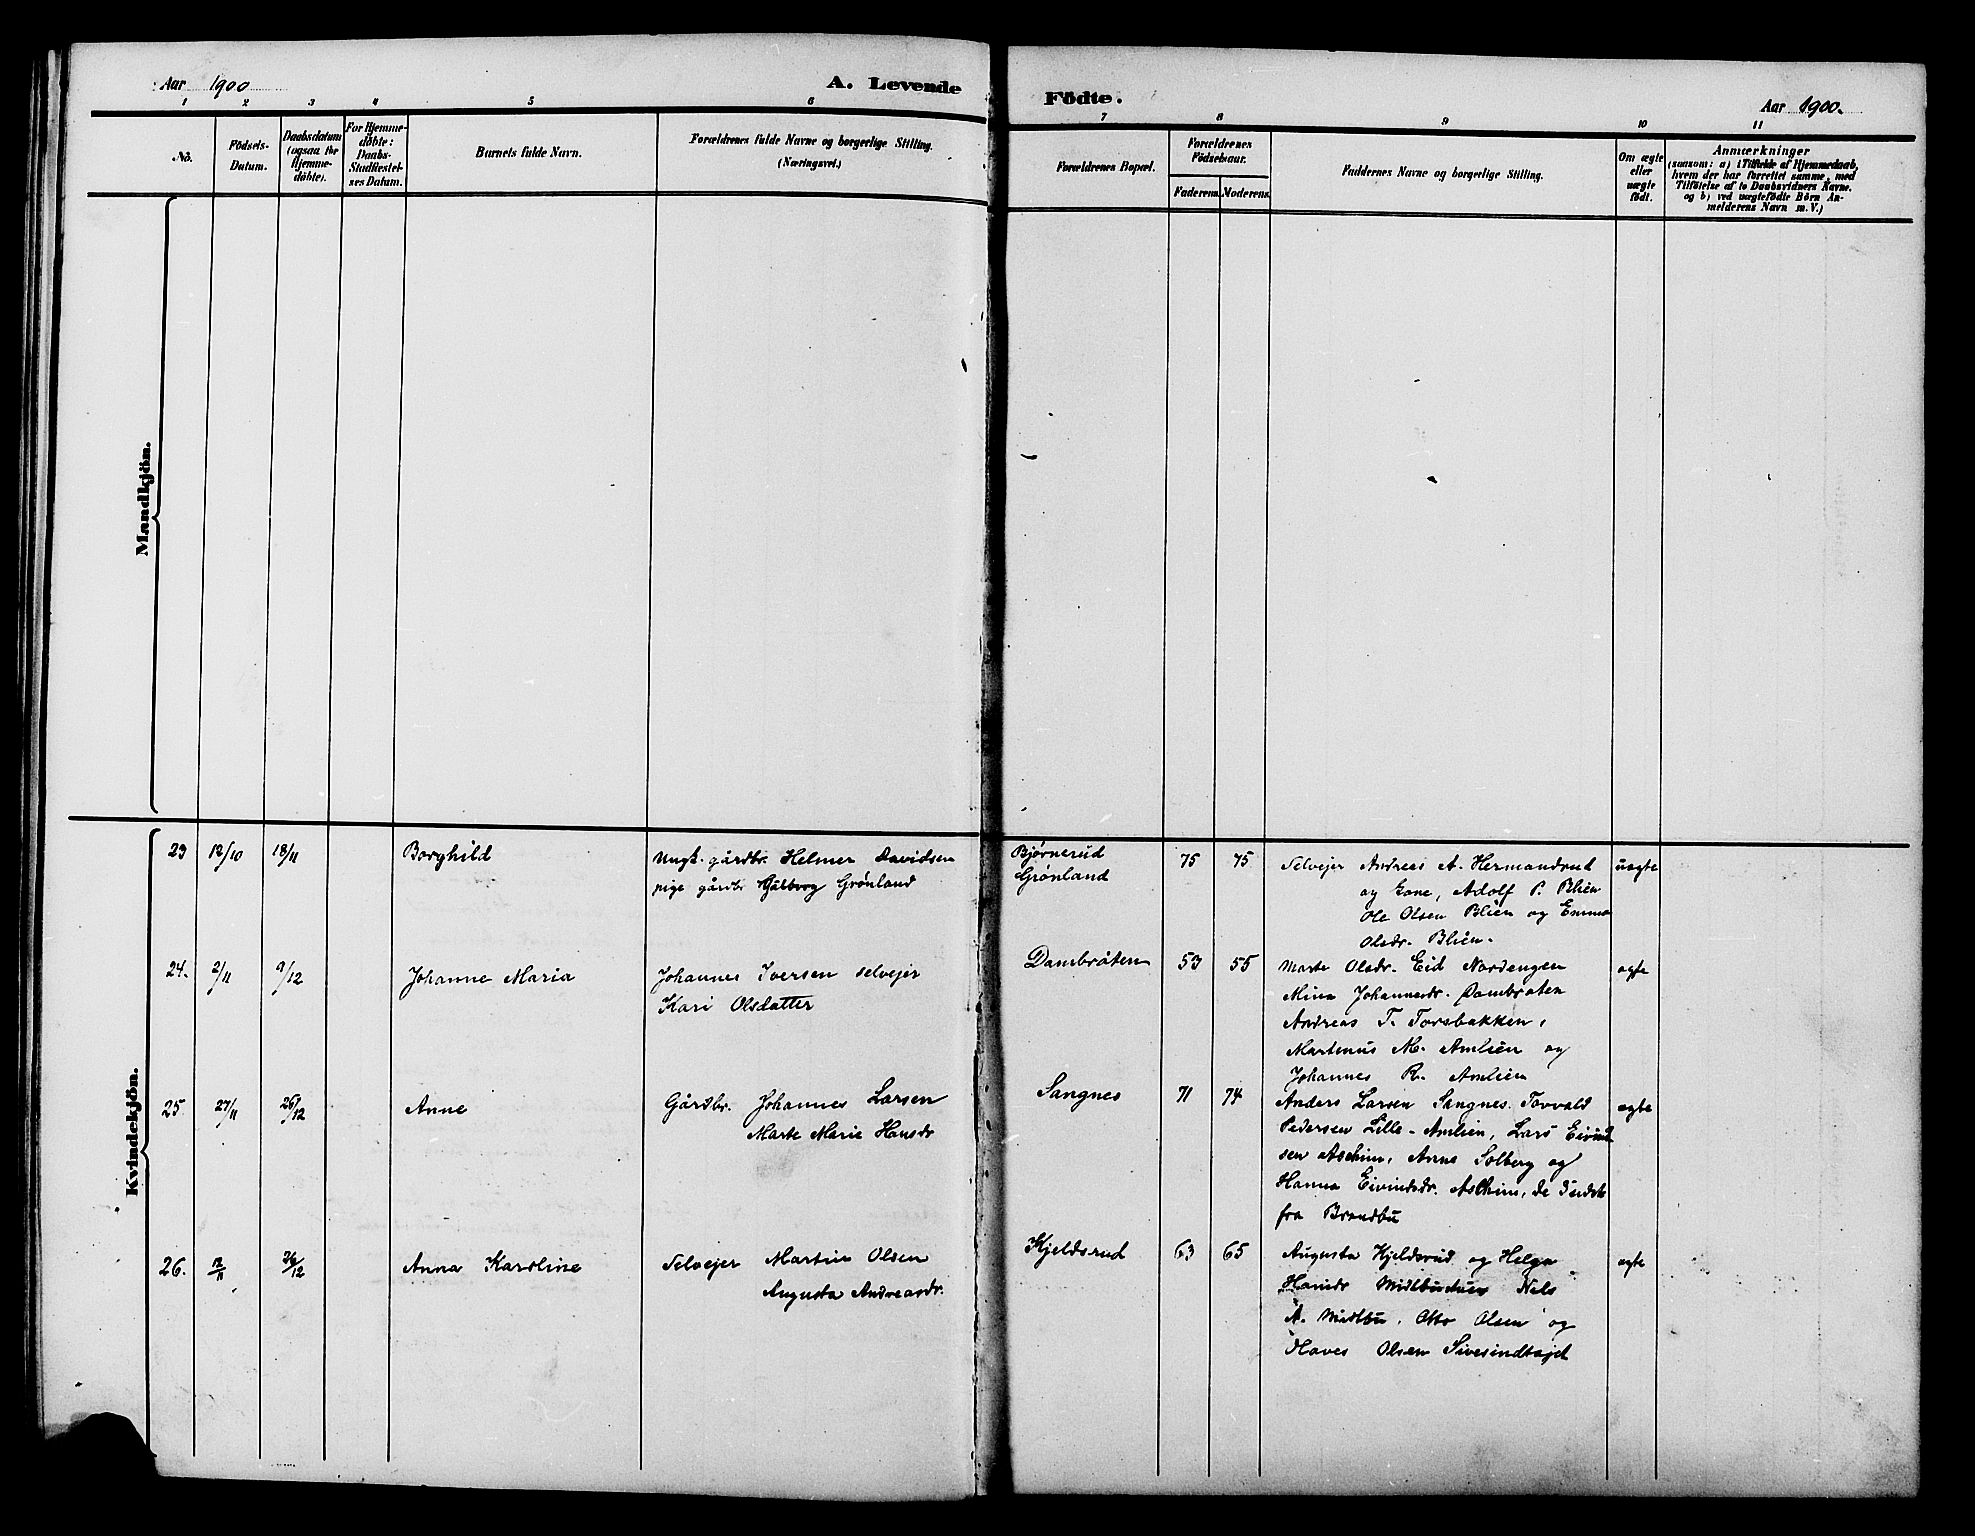 Aar 1900
A. Levende
Födte.
Aar 1900.
1 2 3 4 5 6 7 8 9 10 11
No.
Födsels-
Datum.
Daabsdatum
(ogsaa for
Hjemme-
döbte).
For Hjemme-
döbte:
Daabs-
Stadfæstel-
ses Datum.
Barnets fulde Navn.
Forældrenes fulde Navne og borgerlige Stilling.
(Næringsvei.)
Forældrenes Bopæl.
Forældrenes
Födselsaar.
Faderens. Moderens.
Faddernes Navne og borgerlige Stilling.
Om ægte
eller
uægte
födt.
Anmærkninger
(saasom: a) i Tilfælde af Hjemmedaab,
hvem der har forrettet samme, med
Tilföielse af to Daabsvidners Navne.
og b) ved uægtefödte Börn An-
melderens Navn m.V.)
Mandkjön.
Kvindekjön.
23 12/10 18/11 Borghild Ungk. gårdbr. Helmer Davidsen Bjørnerud 75 75 Selvejer Andreas A. Hermandrud uægte
pige gårdbr Gølborg Grønland Grønland og Kone, Adolf P. Blien
Ole Olsen Blien og Emma
Olsdr. Blien.
24. 2/11 9/12 Johanne Maria Johannes Iversen selvejer Dambråten 53 55 Marte Olsdr. Eid Nordengen ægte
Kari Olsdatter Mina Johannesdr. Dambraten
Andreas T. Torsbakken,
Martinus M. Amlien og
Johannes R. Amlien
25. 27/11 26/12 Anne Gårdbr. Johannes Larsen Sangnes 71 74 Anders Larsen Sangnes. Torvald ægte
Marte Marie Hansdr Pedersen Lille-Amlien, Lars Eivind
sen Aschim, Anne Solberg og
Hanna Eivindsdr. Aschim, de 3 sidste
fra Brandbu
26. 12/11 26/12 Anna Karoline Selvejer Martin Olsen Kjeldsrud 63 65 Augusta Kjeldsrud og Helga ægte
Augusta Andreasdr. Hansdr Nels
A. Midtbu, Otto Olsen og
Olsen